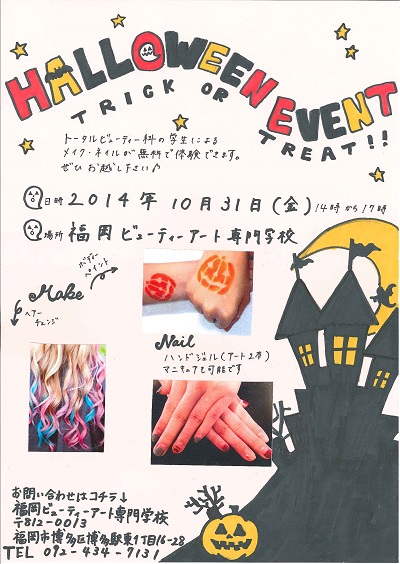 HALLOWEEN EVENT
TRICK OR TREAT!!
トータルビューティー科の学生による
メイク・ネイルが無料で体験できます。
ぜひお越し下さい♪
日時 2014年 10月31日(金) 14時から17時
場所 福岡ビューティーアート専門学校
ボディー
ペイント
Make
ヘアー
チェンジ
Nail
ハンドジェル(アート2本)
マニキュアも可能です
お問い合わせはコチラ↓
福岡ビューティーアート専門学校
〒812-0013
福岡市博多区博多駅東1丁目16-28
TEL 092-434-7131